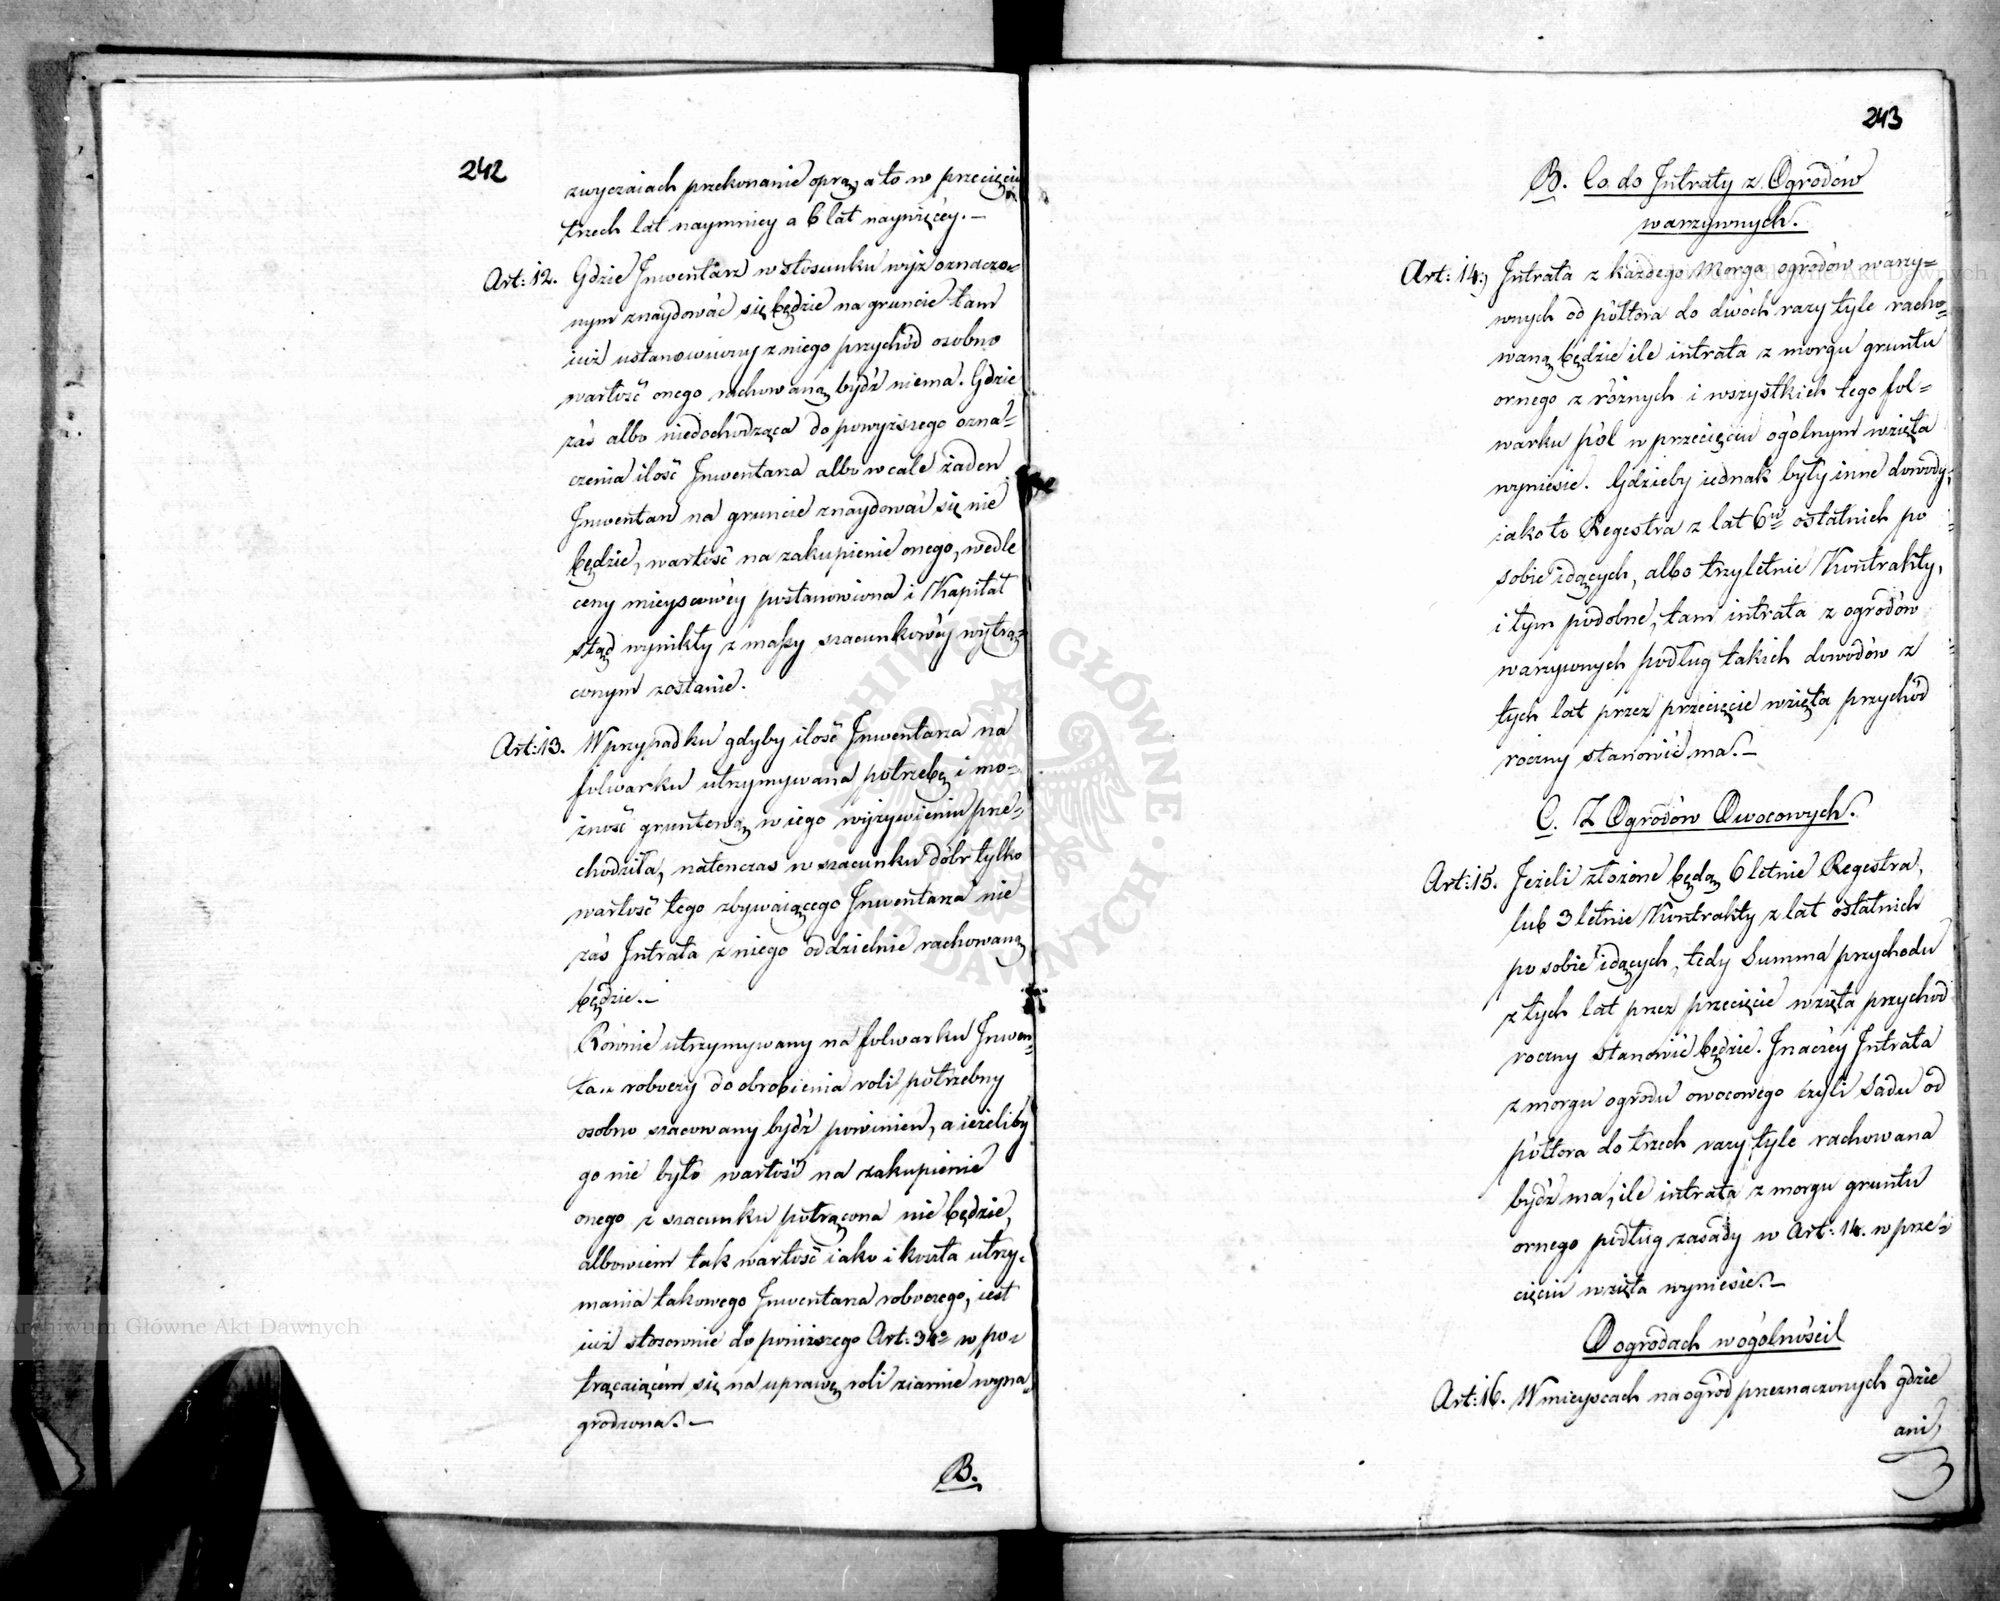 242
zwyczaiach przekonanie oprą, a to w przecięciu
trzech lat naymniey a 6 lat naywięcey.—
Art: 12. Gdzie Inwentarz w stosunku wyż oznaczo=
nym znaydować się będzie na gruncie tam
iuż ustanowiony z niego przychód osobno
wartość onego rachowaną bydź niema. Gdzie
zaś albo niedochodząca do powyższego ozna=
czenia ilość Inwentarza albo wcale żaden
Inwentarz na gruncie znaydować się nie
będzie, wartość na zakupienie onego, wedle
ceny mieyscowéy postanowiona i Kapitał
stąd wynikły z massy szacunkowéy wytrą=
conym zostanie.
Art: 13. W przypadku gdyby ilość Inwentarza na
folwarku utrzymywana potrzebę i mo=
żność gruntową w iego wyżywieniu prze=
chodziła, natenczas w szacunku dóbr tylko
wartość tego zbywaiącego Inwentarza nie
zaś Intrata z niego oddzielnie rachowaną
będzie.—
Równie utrzymywany na folwarku Inwen=
tarz roboczy do obrobienia roli potrzebny
osobno szacowany bydź powinien, a ieżeliby
go nie było wartość na zakupienie
onego z szacunku potrącona nie będzie,
albowiem tak wartość iako i koszta utrzy=
mania takowego Inwentarza roboczego, iest
iuż stosownie do poniższego Art: 34º w po=
trącaiącém się na uprawę roli ziarnie wyna=
grodzona.—
B.
243
B. Co do Intraty z Ogrodów
warzywnych.
Art: 14. Intrata z każdego Morga ogrodów warzy=
wnych od półtora do dwóch razy tyle racho=
waną będzie ile intrata z morgu gruntu
ornego z różnych i wszystkich tego fol=
warku pól w przecięciu ogólnym wzięta
wyniesie. Gdzieby iednak były inne dowody,
iako to Regestra z lat 6ᵘ ostatnich po
sobie idących, albo trzyletnie Kontrakty,
i tym podobne, tam intrata z ogrodów
warzywnych podług takich dowodów z
tych lat przez przecięcie wzięta przychód
roczny stanowić ma.—
C. Z Ogrodów Owocowych.
Art: 15. Jeżeli złożone będą 6 letnie Regestra,
lub 3 letnie Kontrakty z lat ostatnich
po sobie idących, tedy Summa przychodu
z tych lat przez przecięcie wzięta przychód
roczny stanowić będzie. Inaczéy Intrata
z morgu ogrodu owocowego czyli Sadu od
półtora do trzech razy tyle rachowana
bydź ma, ile intrata z morgu gruntu
ornego podług zasady w Art: 14. w prze=
cięciu wzięta wyniesie.—
O ogrodach w ogólności
Art: 16. W mieyscach na ogród przeznaczonych gdzie
ani
Archiwum Główne Akt Dawnych
ARCHIWUM GŁÓWNE AKT DAWNYCH